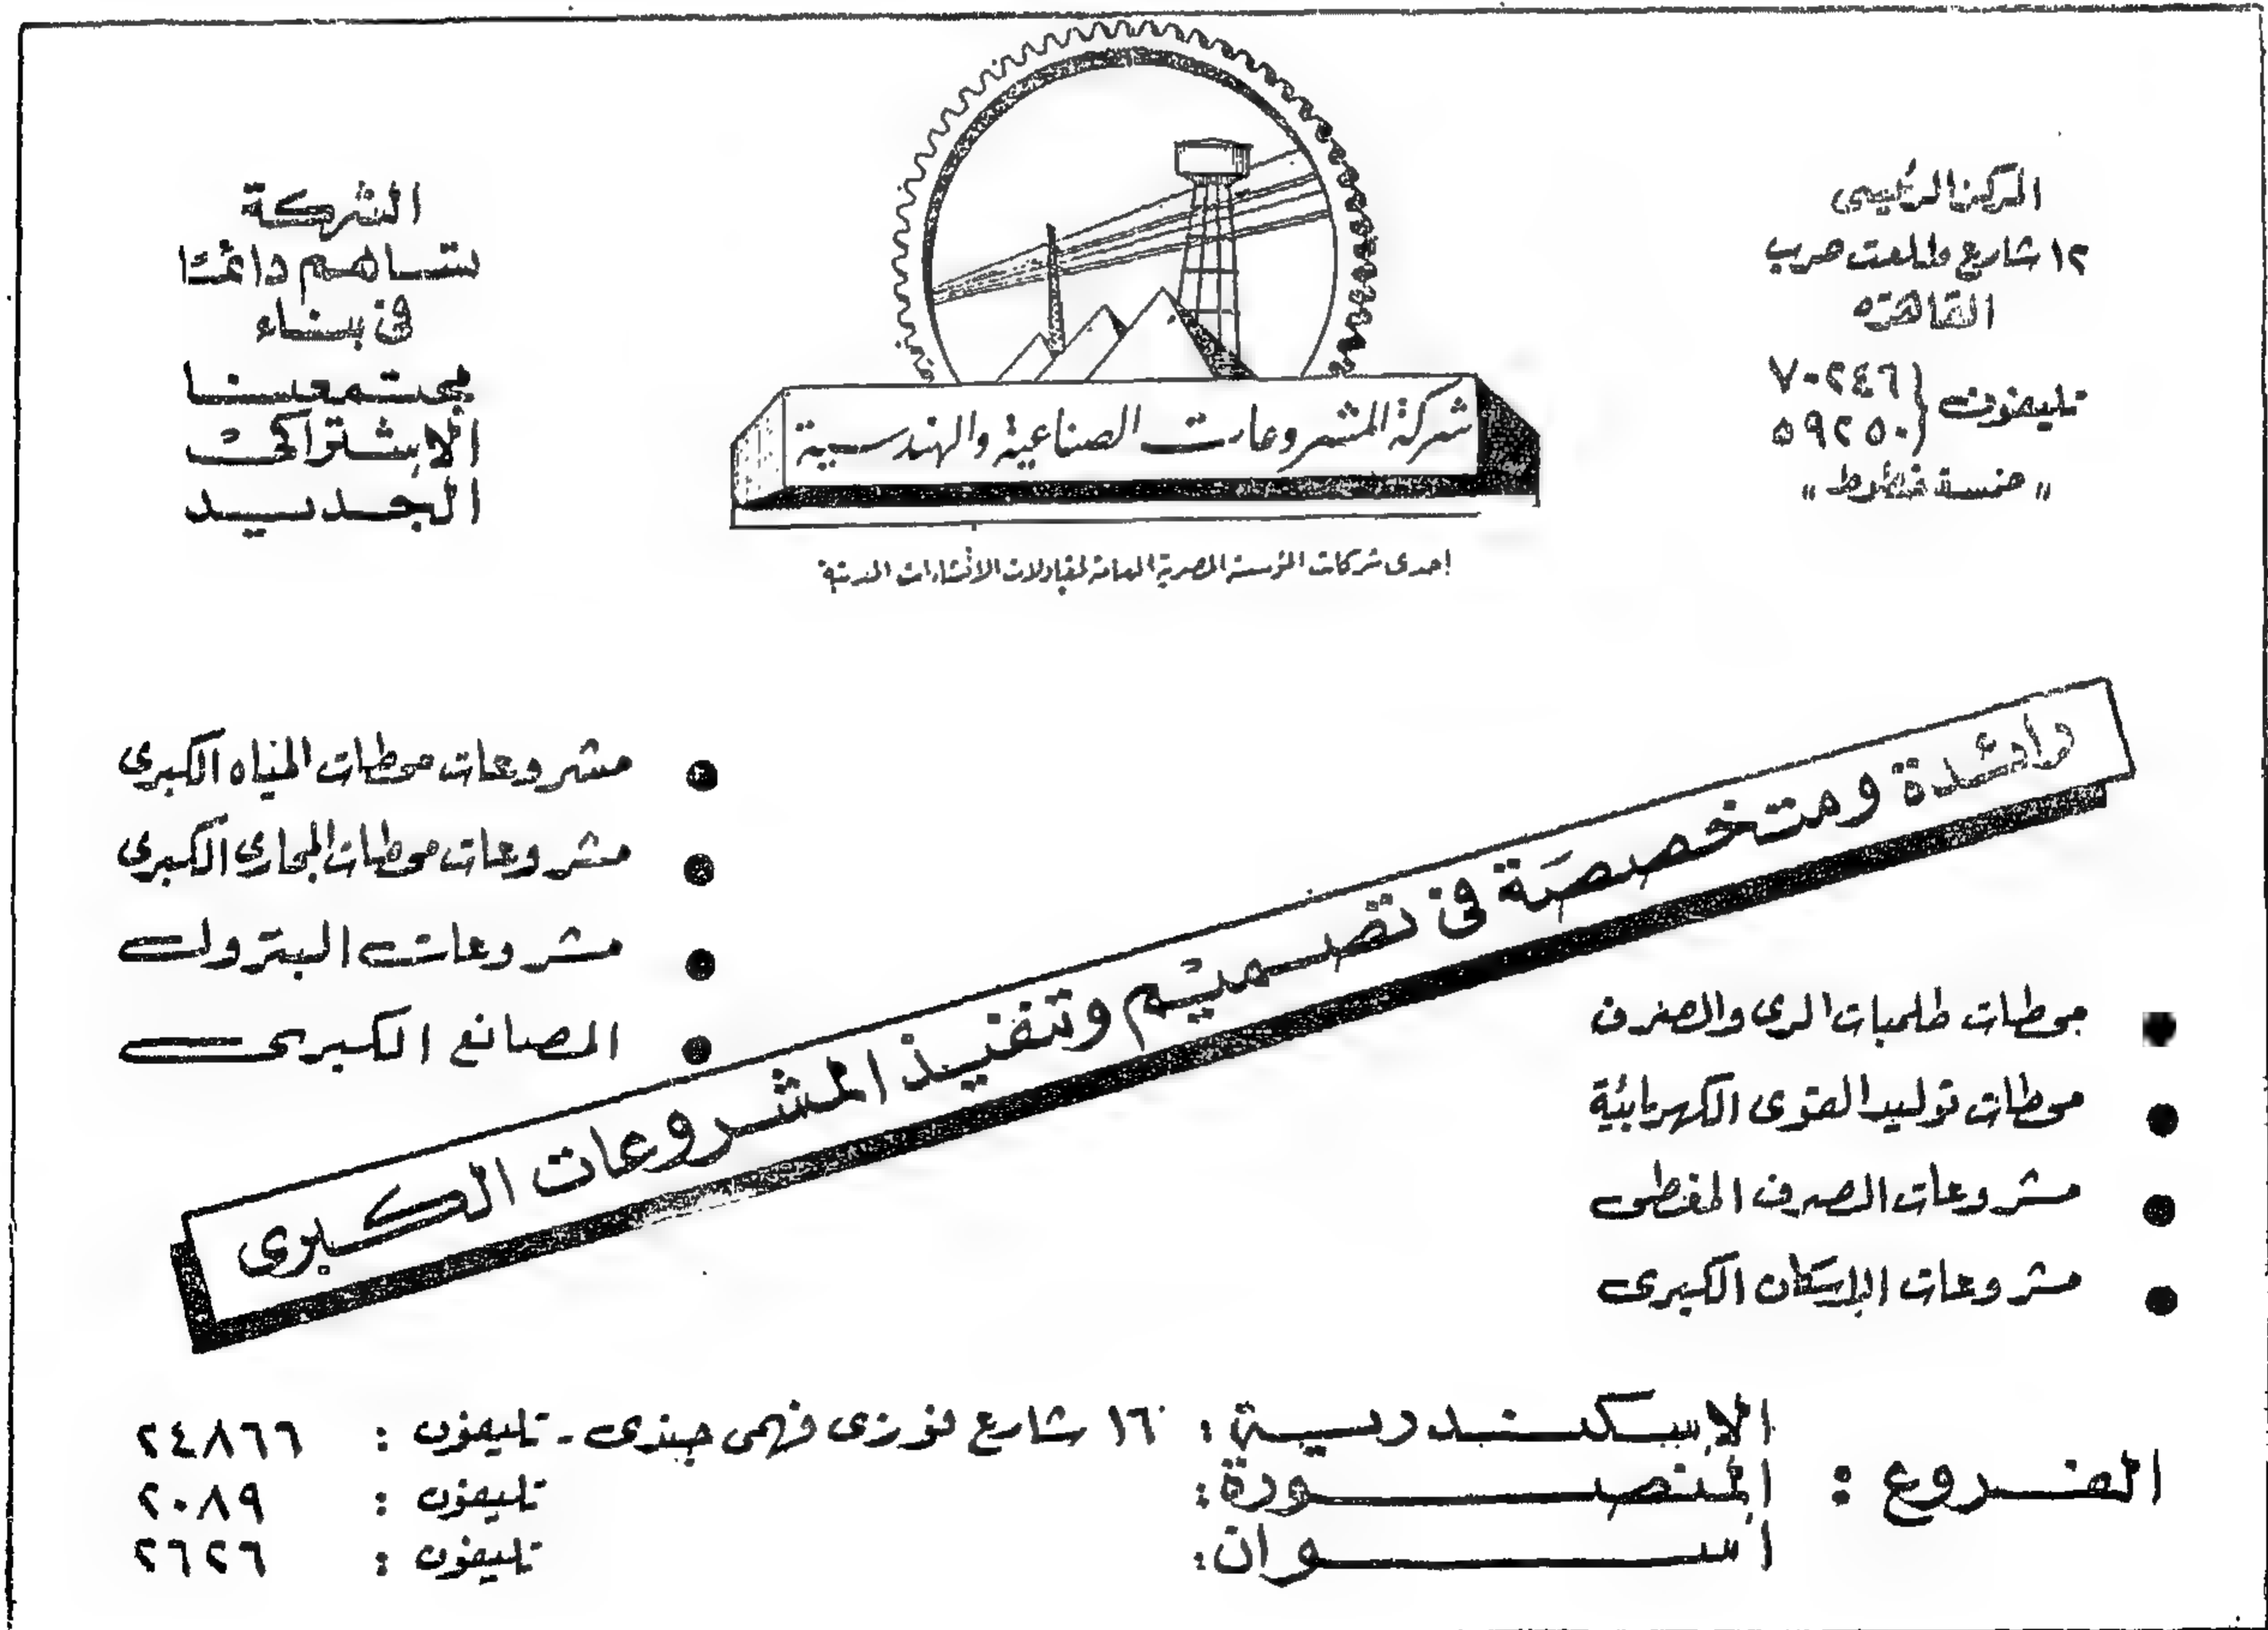 المركز الرئيسى
١٢ شارع طلعت حرب
القاهرة
تليفون ٧٠٢٤٦
٥٩٢٥٠
"خمسة خطوط"
الشركة
تساهم دائمًا
فى بناء
مجتمعنا
الاشتراكى
الجديد
شركة المشروعات الصناعية والهندسية
إحدى شركات المؤسسة المصرية العامة لمقاولات الانشاءات المدنية
رائدة ومتخصصة فى تصميم وتنفيذ المشروعات الكبرى
● مشروعات محطات المياه الكبرى
● مشروعات محطات المجارى الكبرى
● مشروعات البترول
● المصانع الكبرى
● محطات طلمبات الرى والصرف
● محطات توليد القوى الكهربائية
● مشروعات الصرف المغطى
● مشروعات الإسكان الكبرى
الفروع :
الإسكندرية : ١٦ شارع فوزى فهمى جندى - تليفون : ٢٤٨٦٦
المنصورة : تليفون : ٢٠٨٩
أسوان : تليفون : ٢٦٢٦